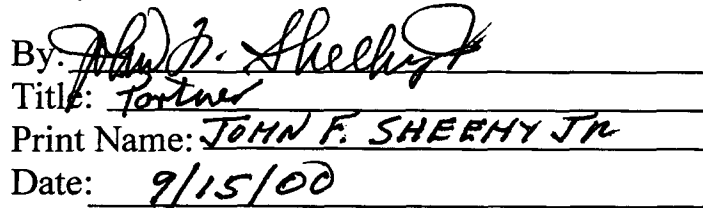 By: John F. Sheehy Jr
Title: Partner
Print Name: JOHN F. SHEEHY JR
Date: 9/15/00